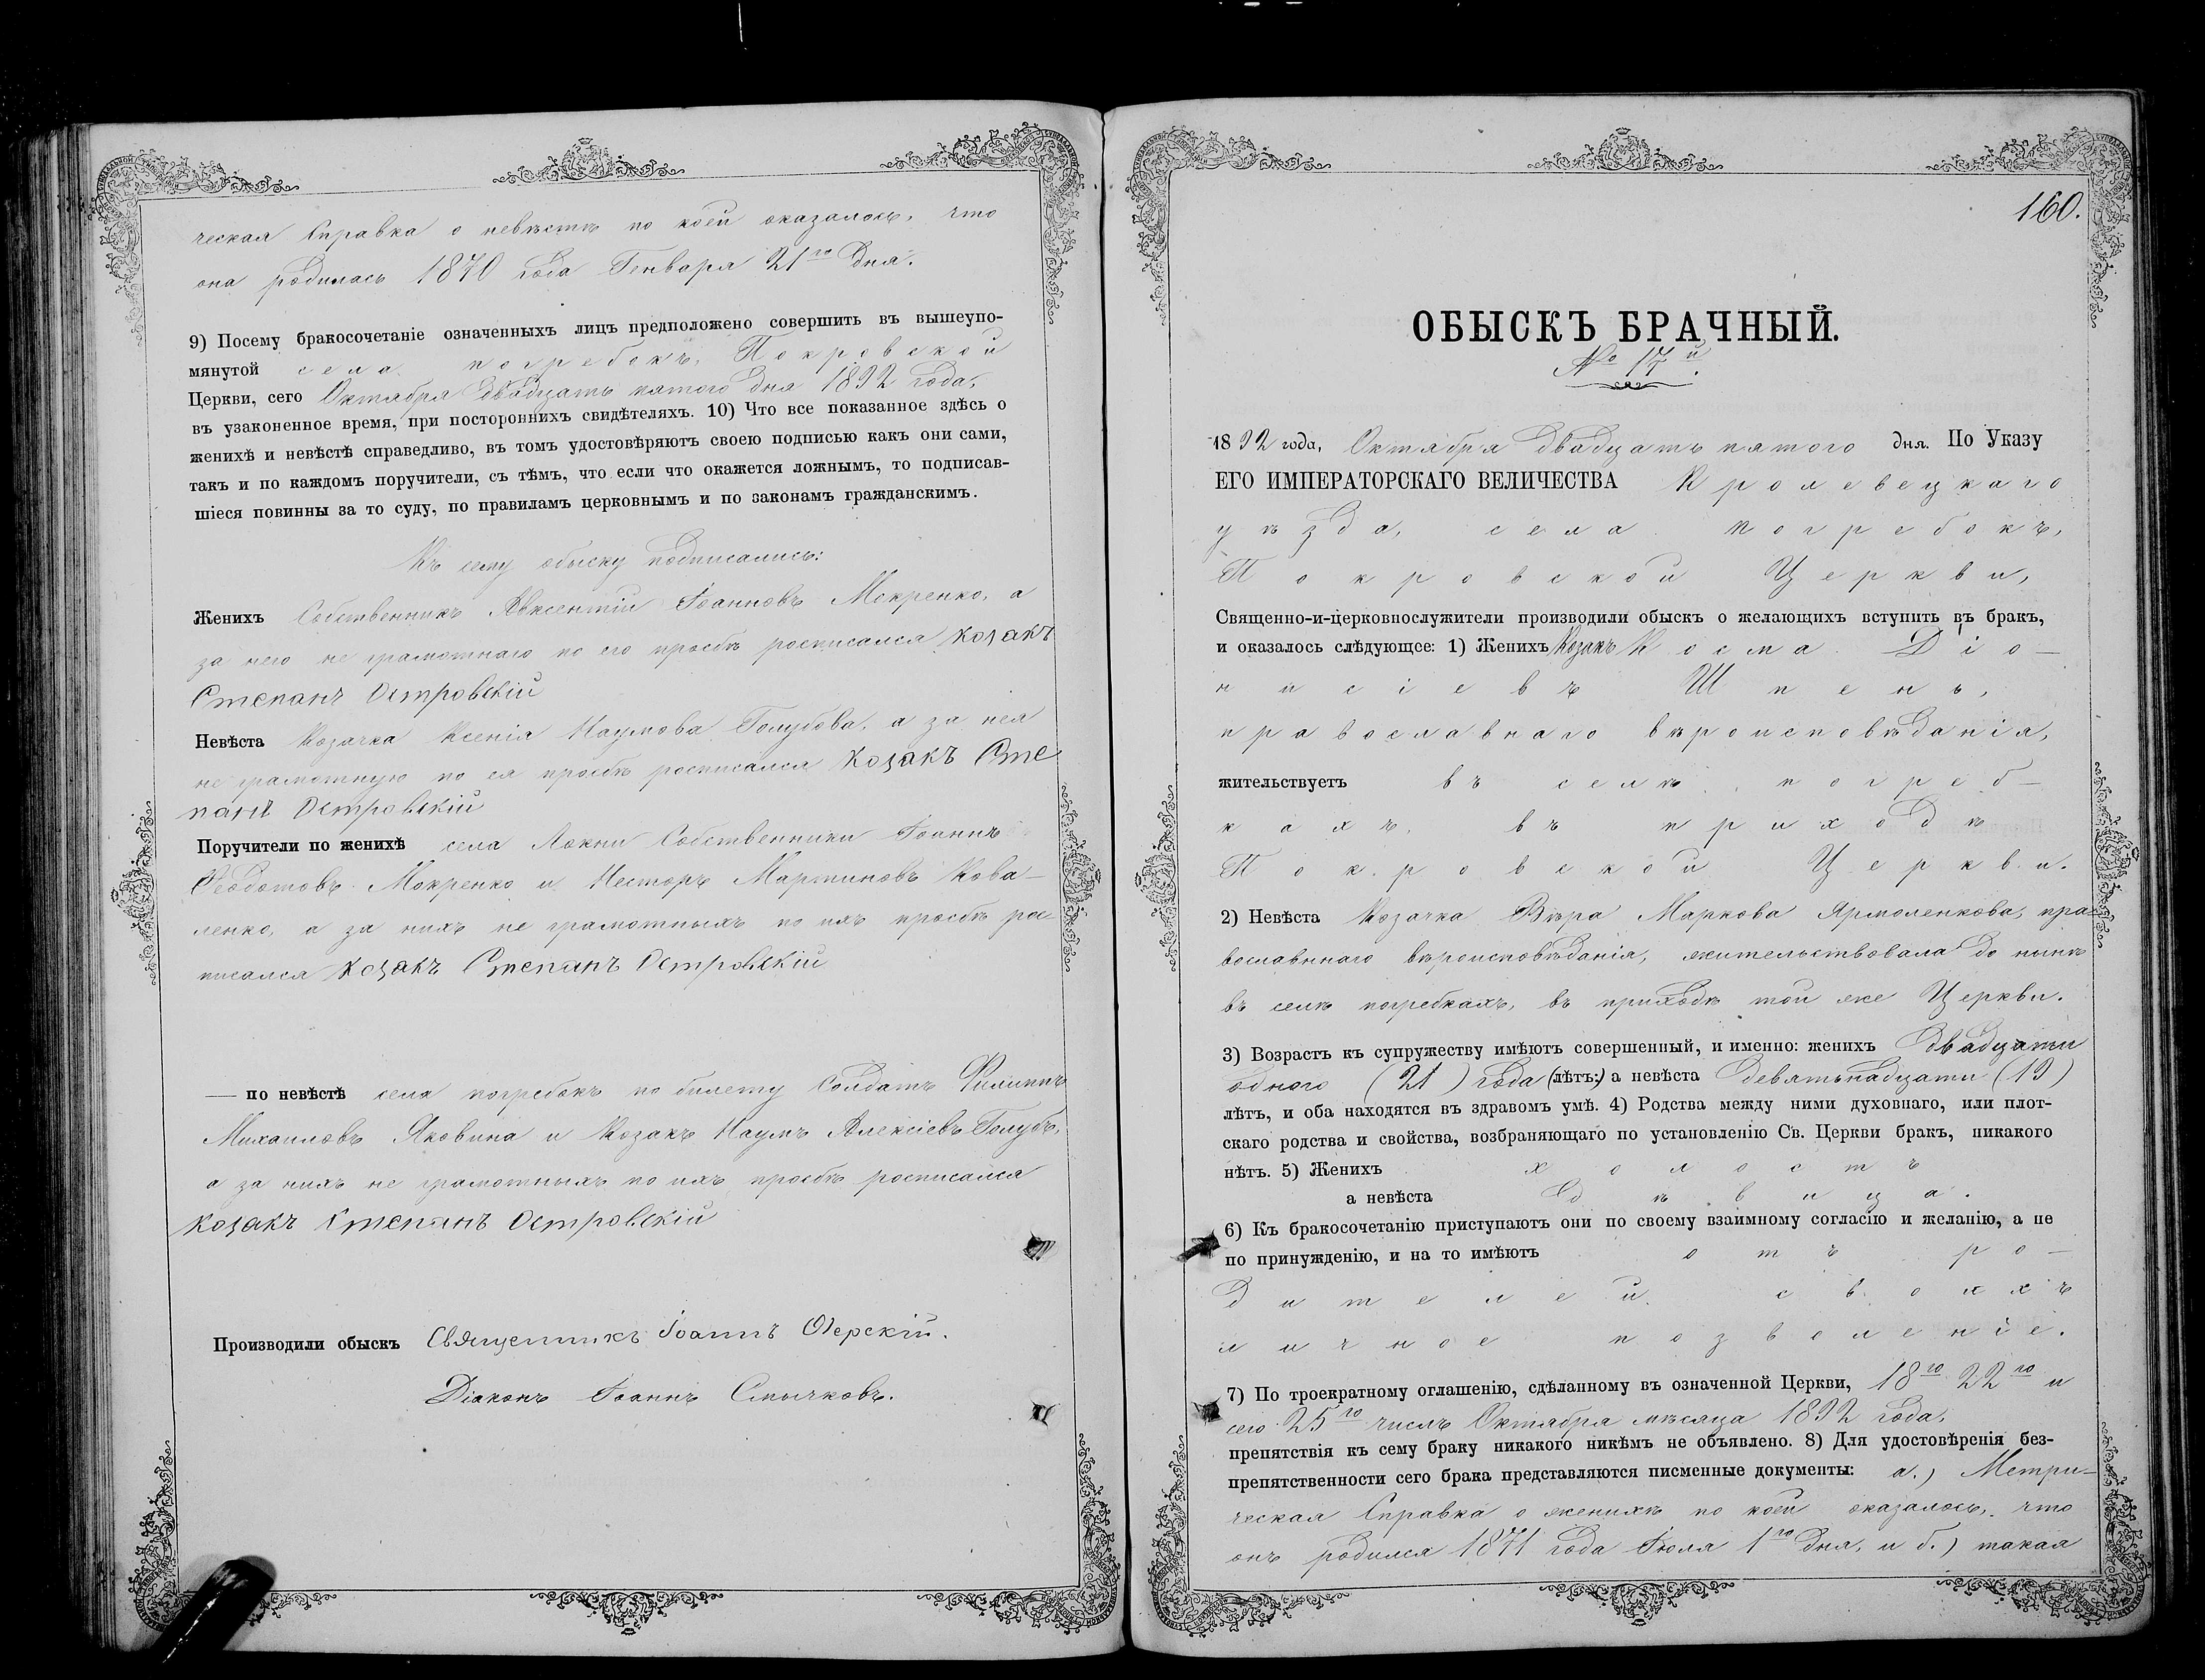 ческая Справка о невѣстѣ по коей оказалось, что
она родилась 1870 года Генваря 21го дня.
9) Посему бракосочетаніе означенныхъ лицъ предположено совершить въ вышеупо-
мянутой села погребокъ, Покровской
Церкви, сего Октября двадцать пятого дня 1892 года,
въ узаконенное время, при постороннихъ свидѣтеляхъ. 10) Что все показанное здѣсь о
женихѣ и невѣстѣ справедливо, въ томъ удостовѣряютъ своею подписью какъ они сами,
такъ и по каждомъ поручители, съ тѣмъ, что если что окажется ложнымъ, то подписав-
шіеся повинны за то суду, по правиламъ церковнымъ и по законамъ гражданскимъ.
Къ сему обыску подписались:
Женихъ Собственникъ Авксентій Іоанновъ Мокренко, а
за него не грамотнаго по его просьбѣ росписался козакъ
Степанъ Островскій
Невѣста Козачка Ксенія Наумова Голубова, а за нея
не грамотную по ея просьбѣ росписался козакъ Сте
панъ Островскій
Поручители по женихѣ села Локни Собственники Іоаннъ
Ѳеодотовъ Мокренко и Несторъ Мартиновъ Кова-
ленко, а за нихъ не грамотныхъ по ихъ просьбѣ рос-
писался козакъ Степанъ Островскій
— по невѣстѣ села погребокъ по билету Солдатъ Филиппъ
Михаиловъ Яковина и Козакъ Наумъ Алексіевъ Голубъ,
а за нихъ не грамотныхъ по ихъ просьбѣ росписался
козакъ Степанъ Островскій
Производили обыскъ Священникъ Іоаннъ
Діаконъ Іоаннъ Смычковъ.
160.
ОБЫСКЪ БРАЧНЫЙ.
№ 17й.
1892 года, Октября двадцать пятого дня. По Указу
ЕГО ИМПЕРАТОРСКАГО ВЕЛИЧЕСТВА Кролевецкаго
уѣзда, села погребокъ,
Покровской Церкви,
Священно-и-церковнослужители производили обыскъ о желающихъ вступить въ бракъ,
и оказалось слѣдующее: 1) Женихъ Козакъ Косма Діо-
нисіевъ Шпень,
православнаго вѣроисповѣданія,
жительствуетъ въ селѣ погреб-
кахъ, въ приходѣ
Покровской Церкви.
2) Невѣста Козачка Вѣра Маркова Ярмоленкова, пра-
вославннаго вѣроисповѣданія, жительствовала до нынѣ
въ селѣ погребкахъ, въ приходѣ той же Церкви.
3) Возрастъ къ супружеству имѣютъ совершенный, и именно: женихъ двадцати
одного (21) года (лѣтъ:) а невѣста девятьнадцати (19)
лѣтъ, и оба находятся въ здравомъ умѣ. 4) Родства между ними духовнаго, или плот-
скаго родства и свойства, возбраняющаго по установленію Св. Церкви бракъ, никакого
нѣтъ. 5) Женихъ холостъ
а невѣста дѣвица.
6) Къ бракосочетанію приступаютъ они по своему взаимному согласію и желанію, а не
по принужденію, и на то имѣютъ отъ ро-
дителей своихъ
личное позволеніе.
7) По троекратному оглашенію, сдѣланному въ означенной Церкви, 18го 22го и
сего 25го числъ Октября мѣсяца 1892 года,
препятствія къ сему браку никакого никѣмъ не объявлено. 8) Для удостовѣренія без-
препятственности сего брака представляются писменные документы: а.) Метри-
ческая Справка о женихѣ по коей оказалось, что
онъ родился 1871 года Іюля 1го дня, и б.) такая